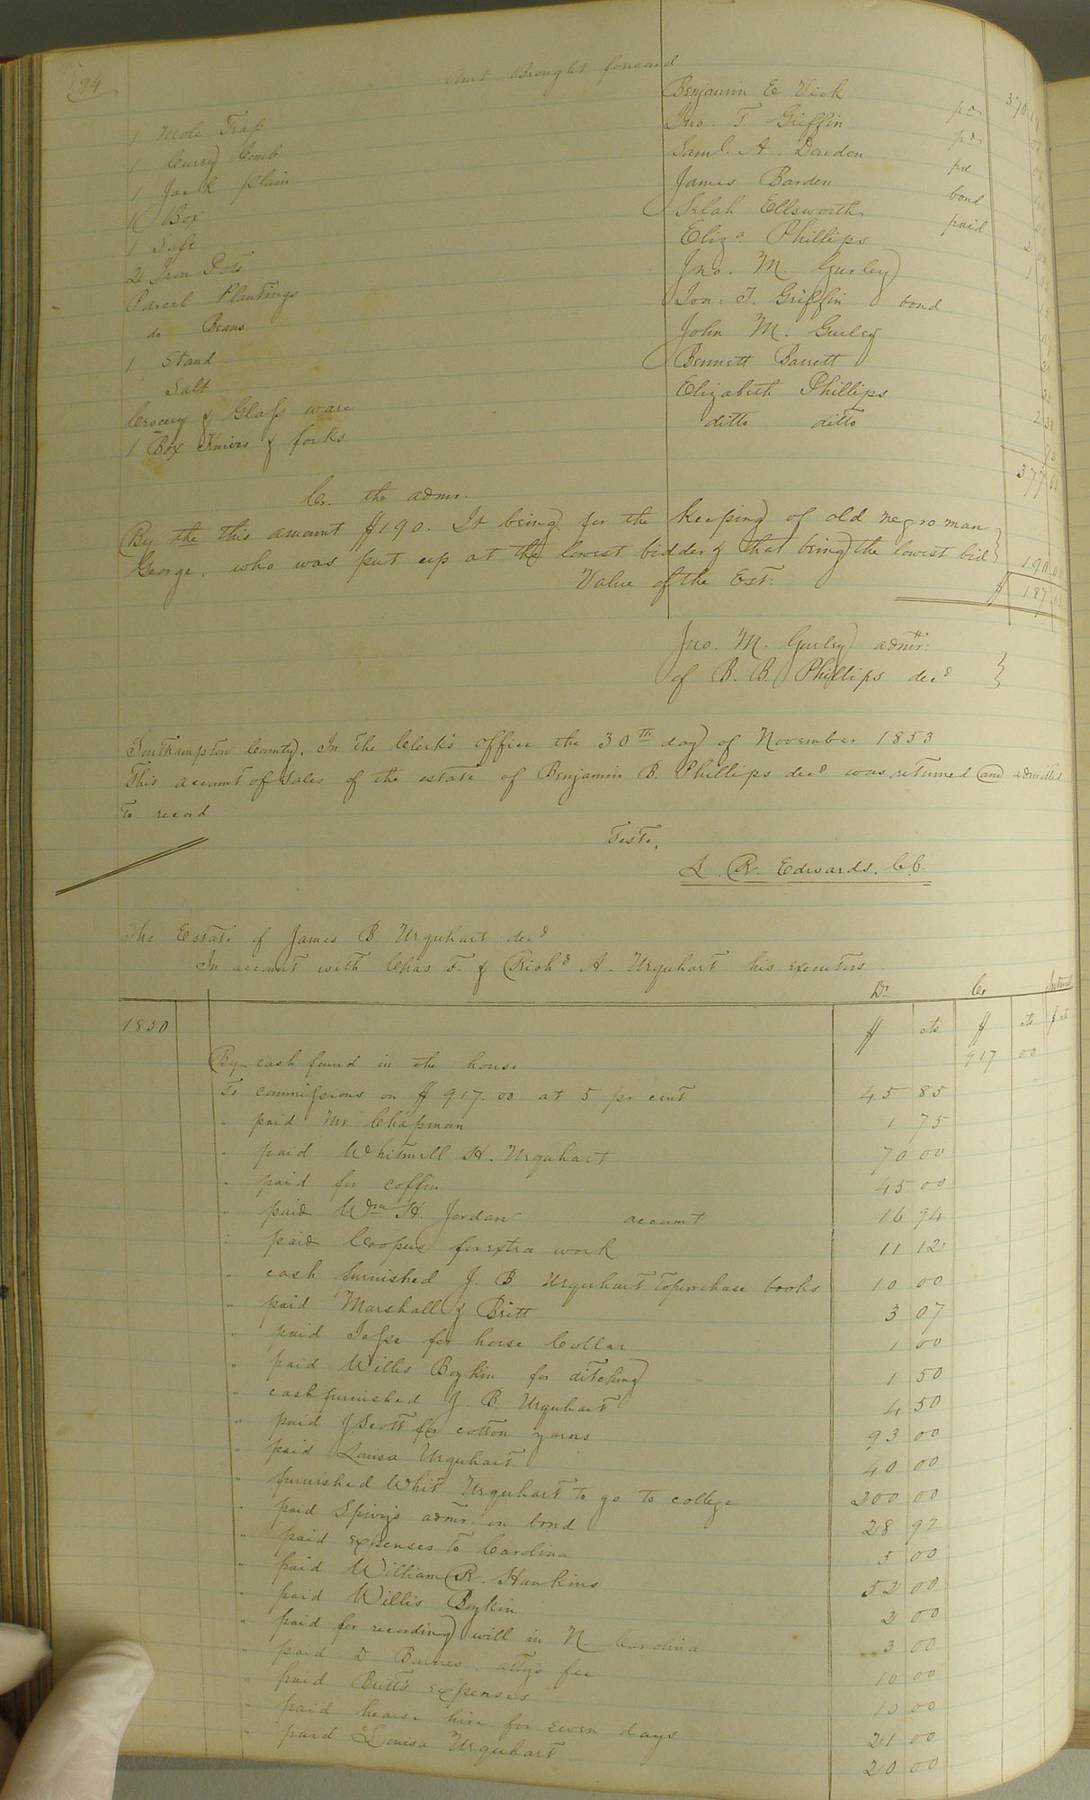 194
Amt Brought forward
1 Mole Trap Benjamin E Vick pd
1 Curry Comb Jno. T Griffin pd
1 Jack plain Saml. A. Darden pd
1 Box James Barden bond
1 Safe Selah Ellsworth paid
2 Iron Pots Eliza Phillips
Parcel Plantings Jno. M. Gurley
do Beans Jon. T. Griffin bond
1 Stand John M. Gurley
Salt Bennett Barrett
Crocery & Glass ware Elizabeth Phillips
1 Box Knives & forks ditto ditto
377
Cr. the admr.
By the this amount $190. It being for the keeping of old negro man
George. who was put up at the lowest bidder & that being the lowest bid 190
Value of the Est: $ 187
Jno. M. Gurley admr:
of B. B. Phillips decd
Southampton County. In the Clerk's office the 30th day of November 1853
This account of sales of the estate of Benjamin B. Phillips decd was returned and admitted
to record
Teste.
L. R. Edwards. C.C.
The Estate of James B Urquhart decd
In account with Chas F. & Richd A. Urquhart his executors
Dr Cr Interest
1850 $ cts $ cts $ cts
By cash found in the house 917 00
To commissions on $917.00 at 5 pr cent 45 85
" paid Mr. Chapman 1 75
" paid Whitmell H. Urquhart 70 00
" paid for coffin 45 00
" paid Wm H. Jordan account 16 94
" paid Coopers for extra work 11 12
" cash furnished J. B Urquhart to purchase books 10 00
" paid Marshall & Britt 3 07
" paid Jesse for horse Collar 1 00
" paid Willis Boykin for ditching 1 50
" cash furnished J. B. Urquhart 4 50
" paid J Scott for cotton yarns 93 00
" paid Louisa Urquhart 40 00
" furnished Whit Urquhart to go to college 200 00
" paid Spivey's admr. on bond 28 92
" paid expenses to Carolina 5 00
" paid William R. Hawkins 52 00
" paid Willis Boykin 2 00
" paid for recording will in N. Carolina 3 00
" paid D Barnes atty's fee 10 00
" paid Britt's expenses 10 00
" paid hearse hire for seven days 21 00
" paid Louisa Urquhart 20 00